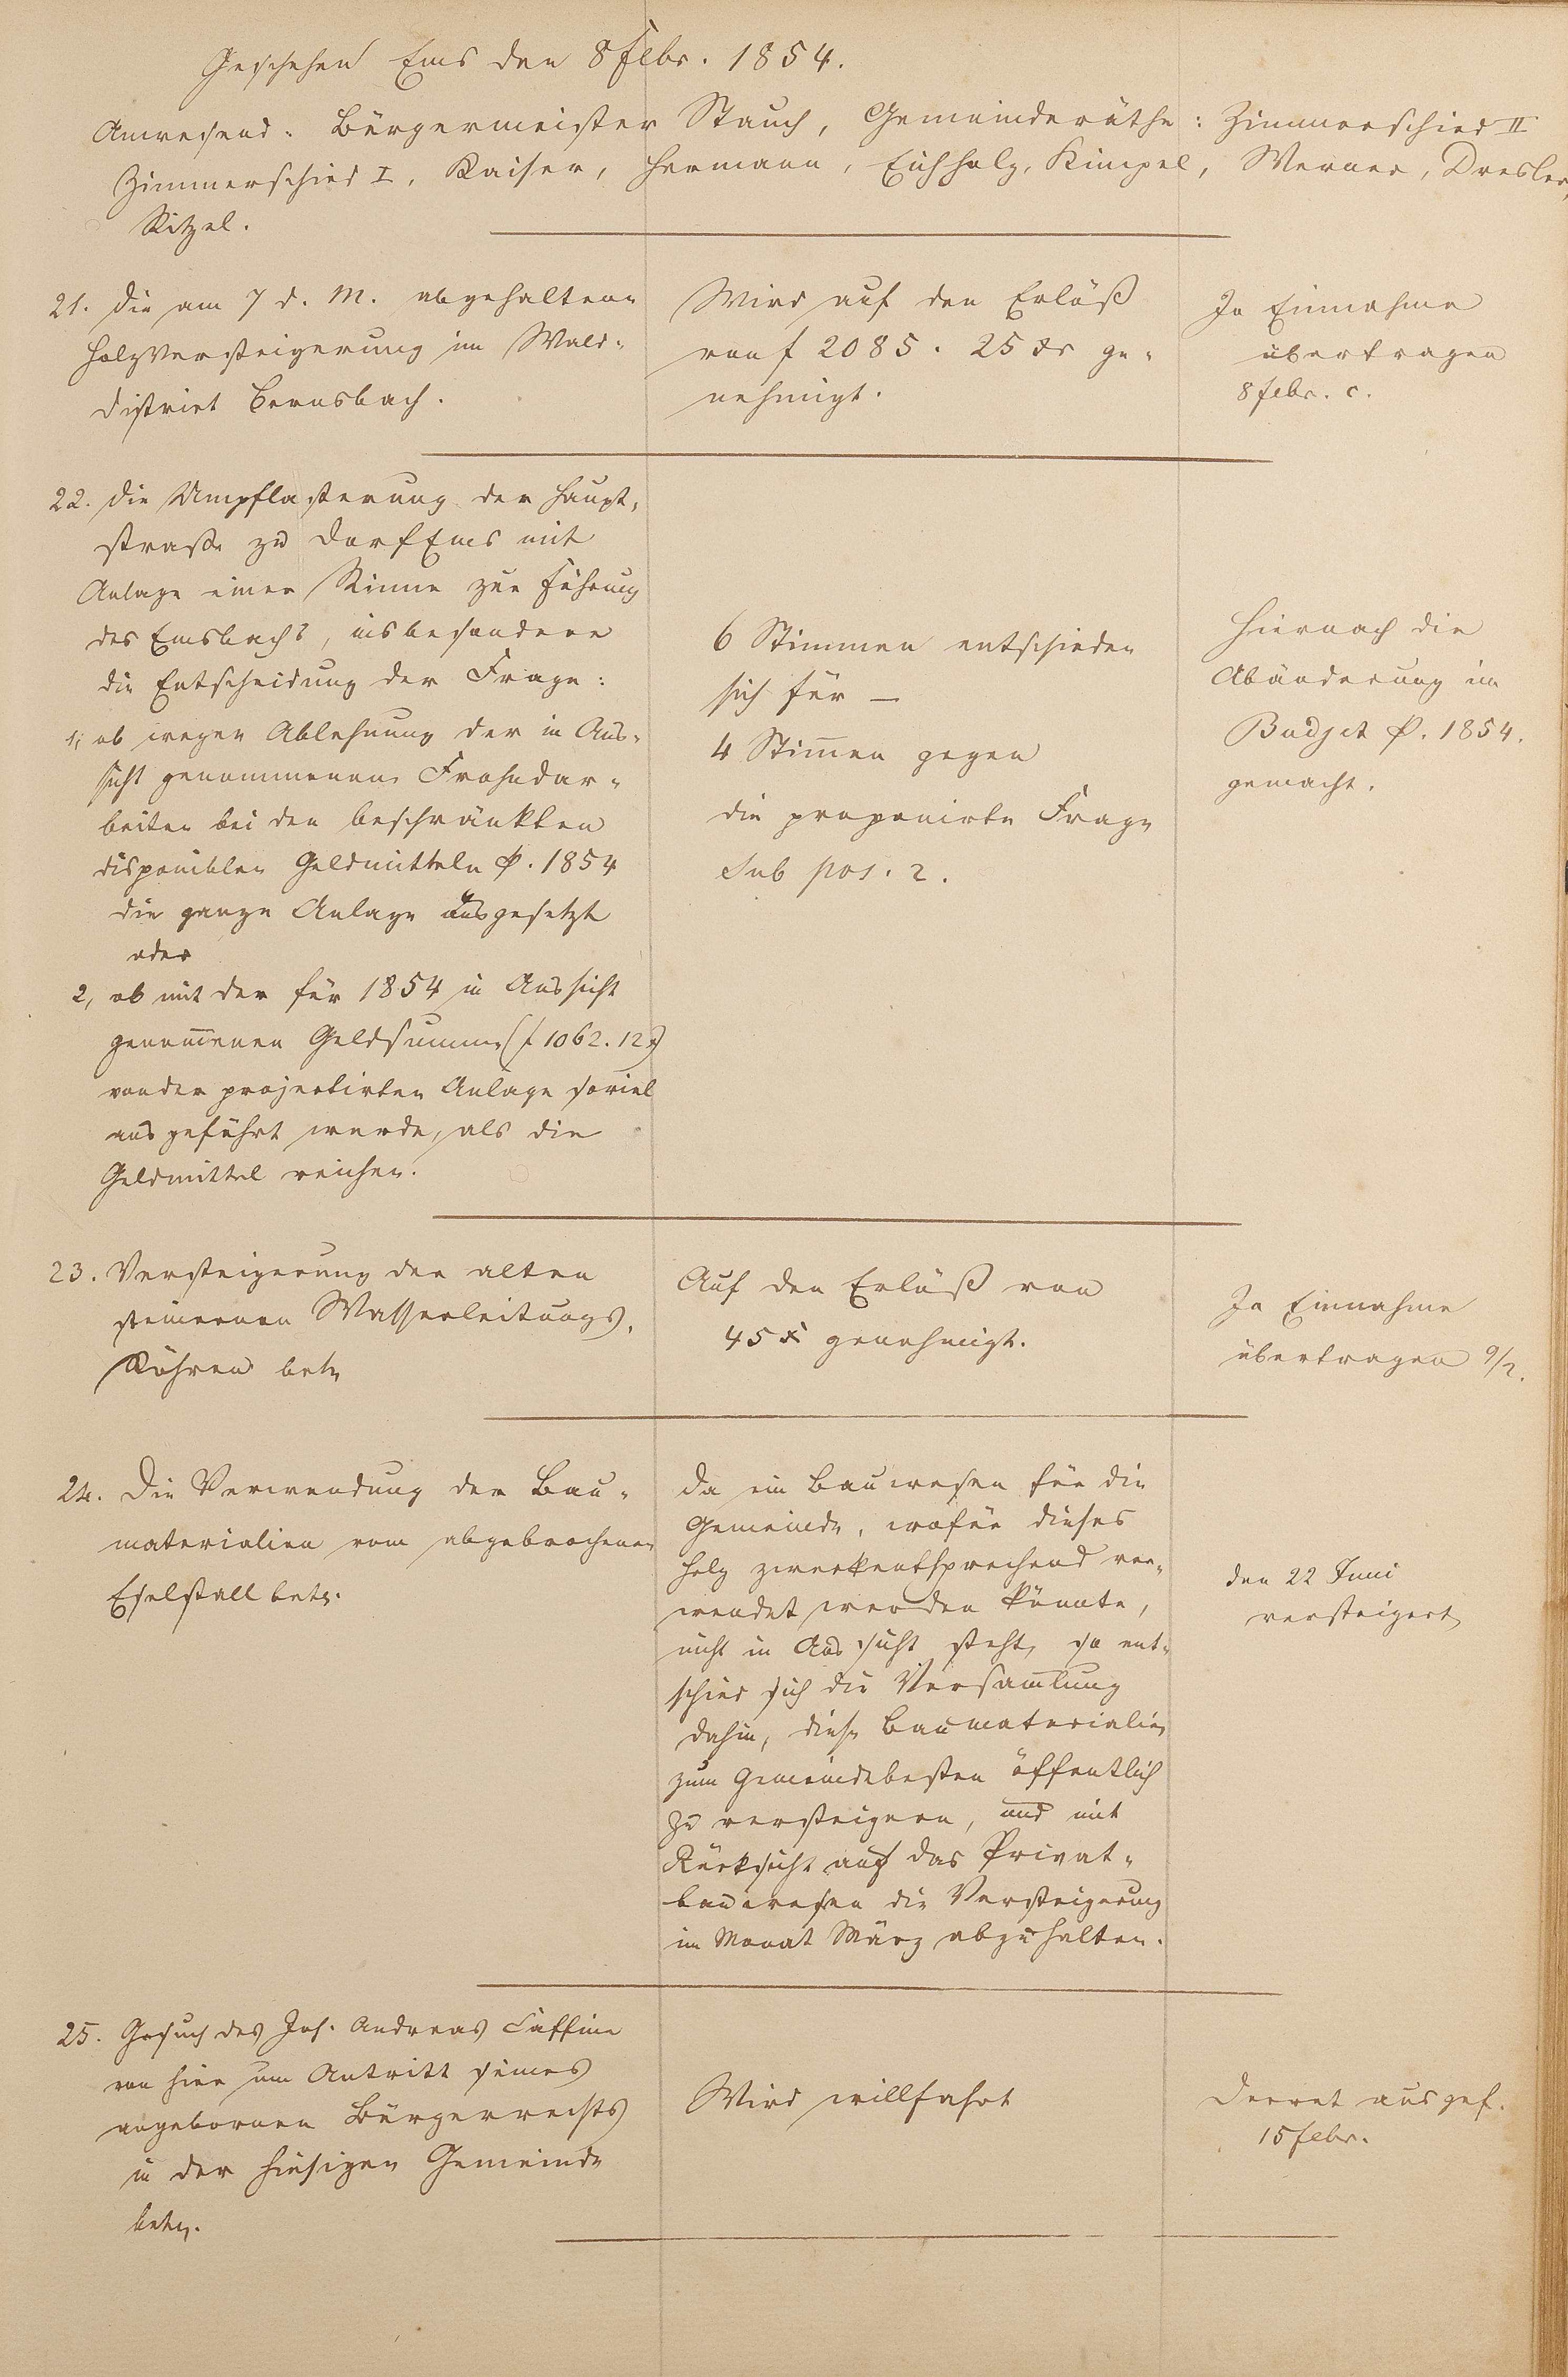 Geschehen Ems den 8 Febr. 1854.
Anwesend: Bürgermeister Stauch, Gemeinderäthe: Zimmerschied II
Zimmerschied I, Kaiser, Hermann, Eichholz, Kimpel, Werner, Dresler,
Ritzel.
21. Die am 7 d. M. abgehaltene
Holzversteigerung im Wald-
district Bernsbach.
Wird auf den Erlöß
von f 2085. 25 xr ge-
nehmigt.
In Einnahme
übertragen
8 Febr. c.
22. Die Umpflasterung der Haupt-
straße zu Dorf Ems mit
Anlage einer Rinne zur Führung
des Emsbachs, insbesondere
die Entscheidung der Frage:
1, ob wegen Ablehnung der in Aus-
sicht genommenen Frohndar-
beiten bei den beschränkten
disponiblen Geldmitteln p. 1854
die ganze Anlage ausgesetzt
oder
2, ob mit der für 1854 in Aussicht
genommenen Geldsumme (f 1062. 12 x)
von der projectirten Anlage soviel
ausgeführt werde, als die
Geldmittel reichen.
6 Stimmen entschieden
sich für –
4 Stimmen gegen
die proponirte Frage
sub pos. 2.
Hiernach die
Abänderung im
Budjet p. 1854.
gemacht.
23. Versteigerung der alten
steinernen Wasserleitungs-
Röhren betr.
Auf den Erlöß von
45 x genehmigt.
In Einnahme
übertragen 9/2.
24. Die Verwendung der Bau-
materialien vom abgebrochenen
Eselstall betr.
Da ein Bauwesen für die
Gemeinde, wofür dieses
Holz zweckentsprechend ver-
wendet werden könnte,
nicht in Aussicht steht, so ent-
schied sich die Versamlung
dahin, diese Baumaterialien
zum Gemeindebesten öffentlich
zu versteigern, und mit
Rücksicht auf das Privat-
bauwesen die Versteigerung
im Monat März abzuhalten.
den 22 Juni
versteigert
25. Gesuch des Joh. Andreas Caffine
von hier um Antritt seines
angebornen Bürgerrechts
in der hiesigen Gemeinde
betr.
Wird willfahrt
Decret ausgef.
15 Febr.